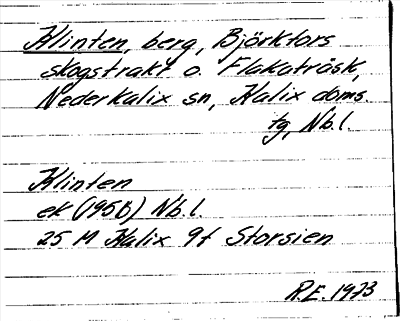 Klinten, berg, Björkfors
skogstrakt o. Flakaträsk,
Nederkalix sn, Kalix doms.
tg, Nb.l.
Klinten
ek (1956) Nb.l.
25 M Kalix 9f Storsien
R.E. 1973